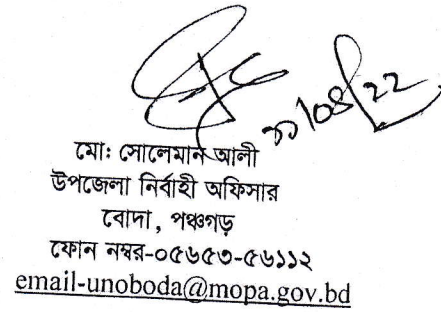 ৩১/০৪/২২
মো: সোলেমান আলী
উপজেলা নির্বাহী অফিসার
বোদা, পঞ্চগড়
ফোন নম্বর-০৫৬৫৩-৫৬১১২
email-unoboda@mopa.gov.bd